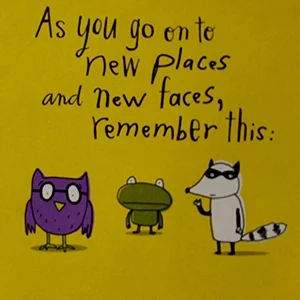 As you go on to
new places
and new faces,
remember this: